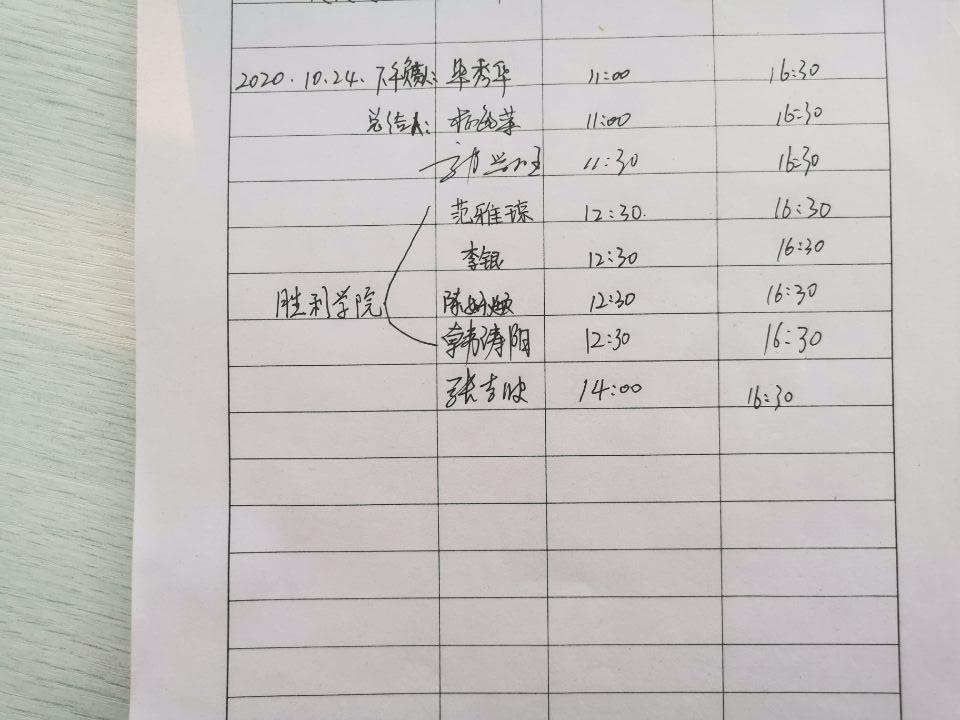 2020.10.24.下午负责人: 毕秀华 11:00 16:30
总结人: 11:00 16:30
11:30 16:30
范雅琼 12:30. 16:30
李银 12:30 16:30
胜利学院 陈 12:30 16:30
韩涛阳 12:30 16:30
张吉 14:00 16:30